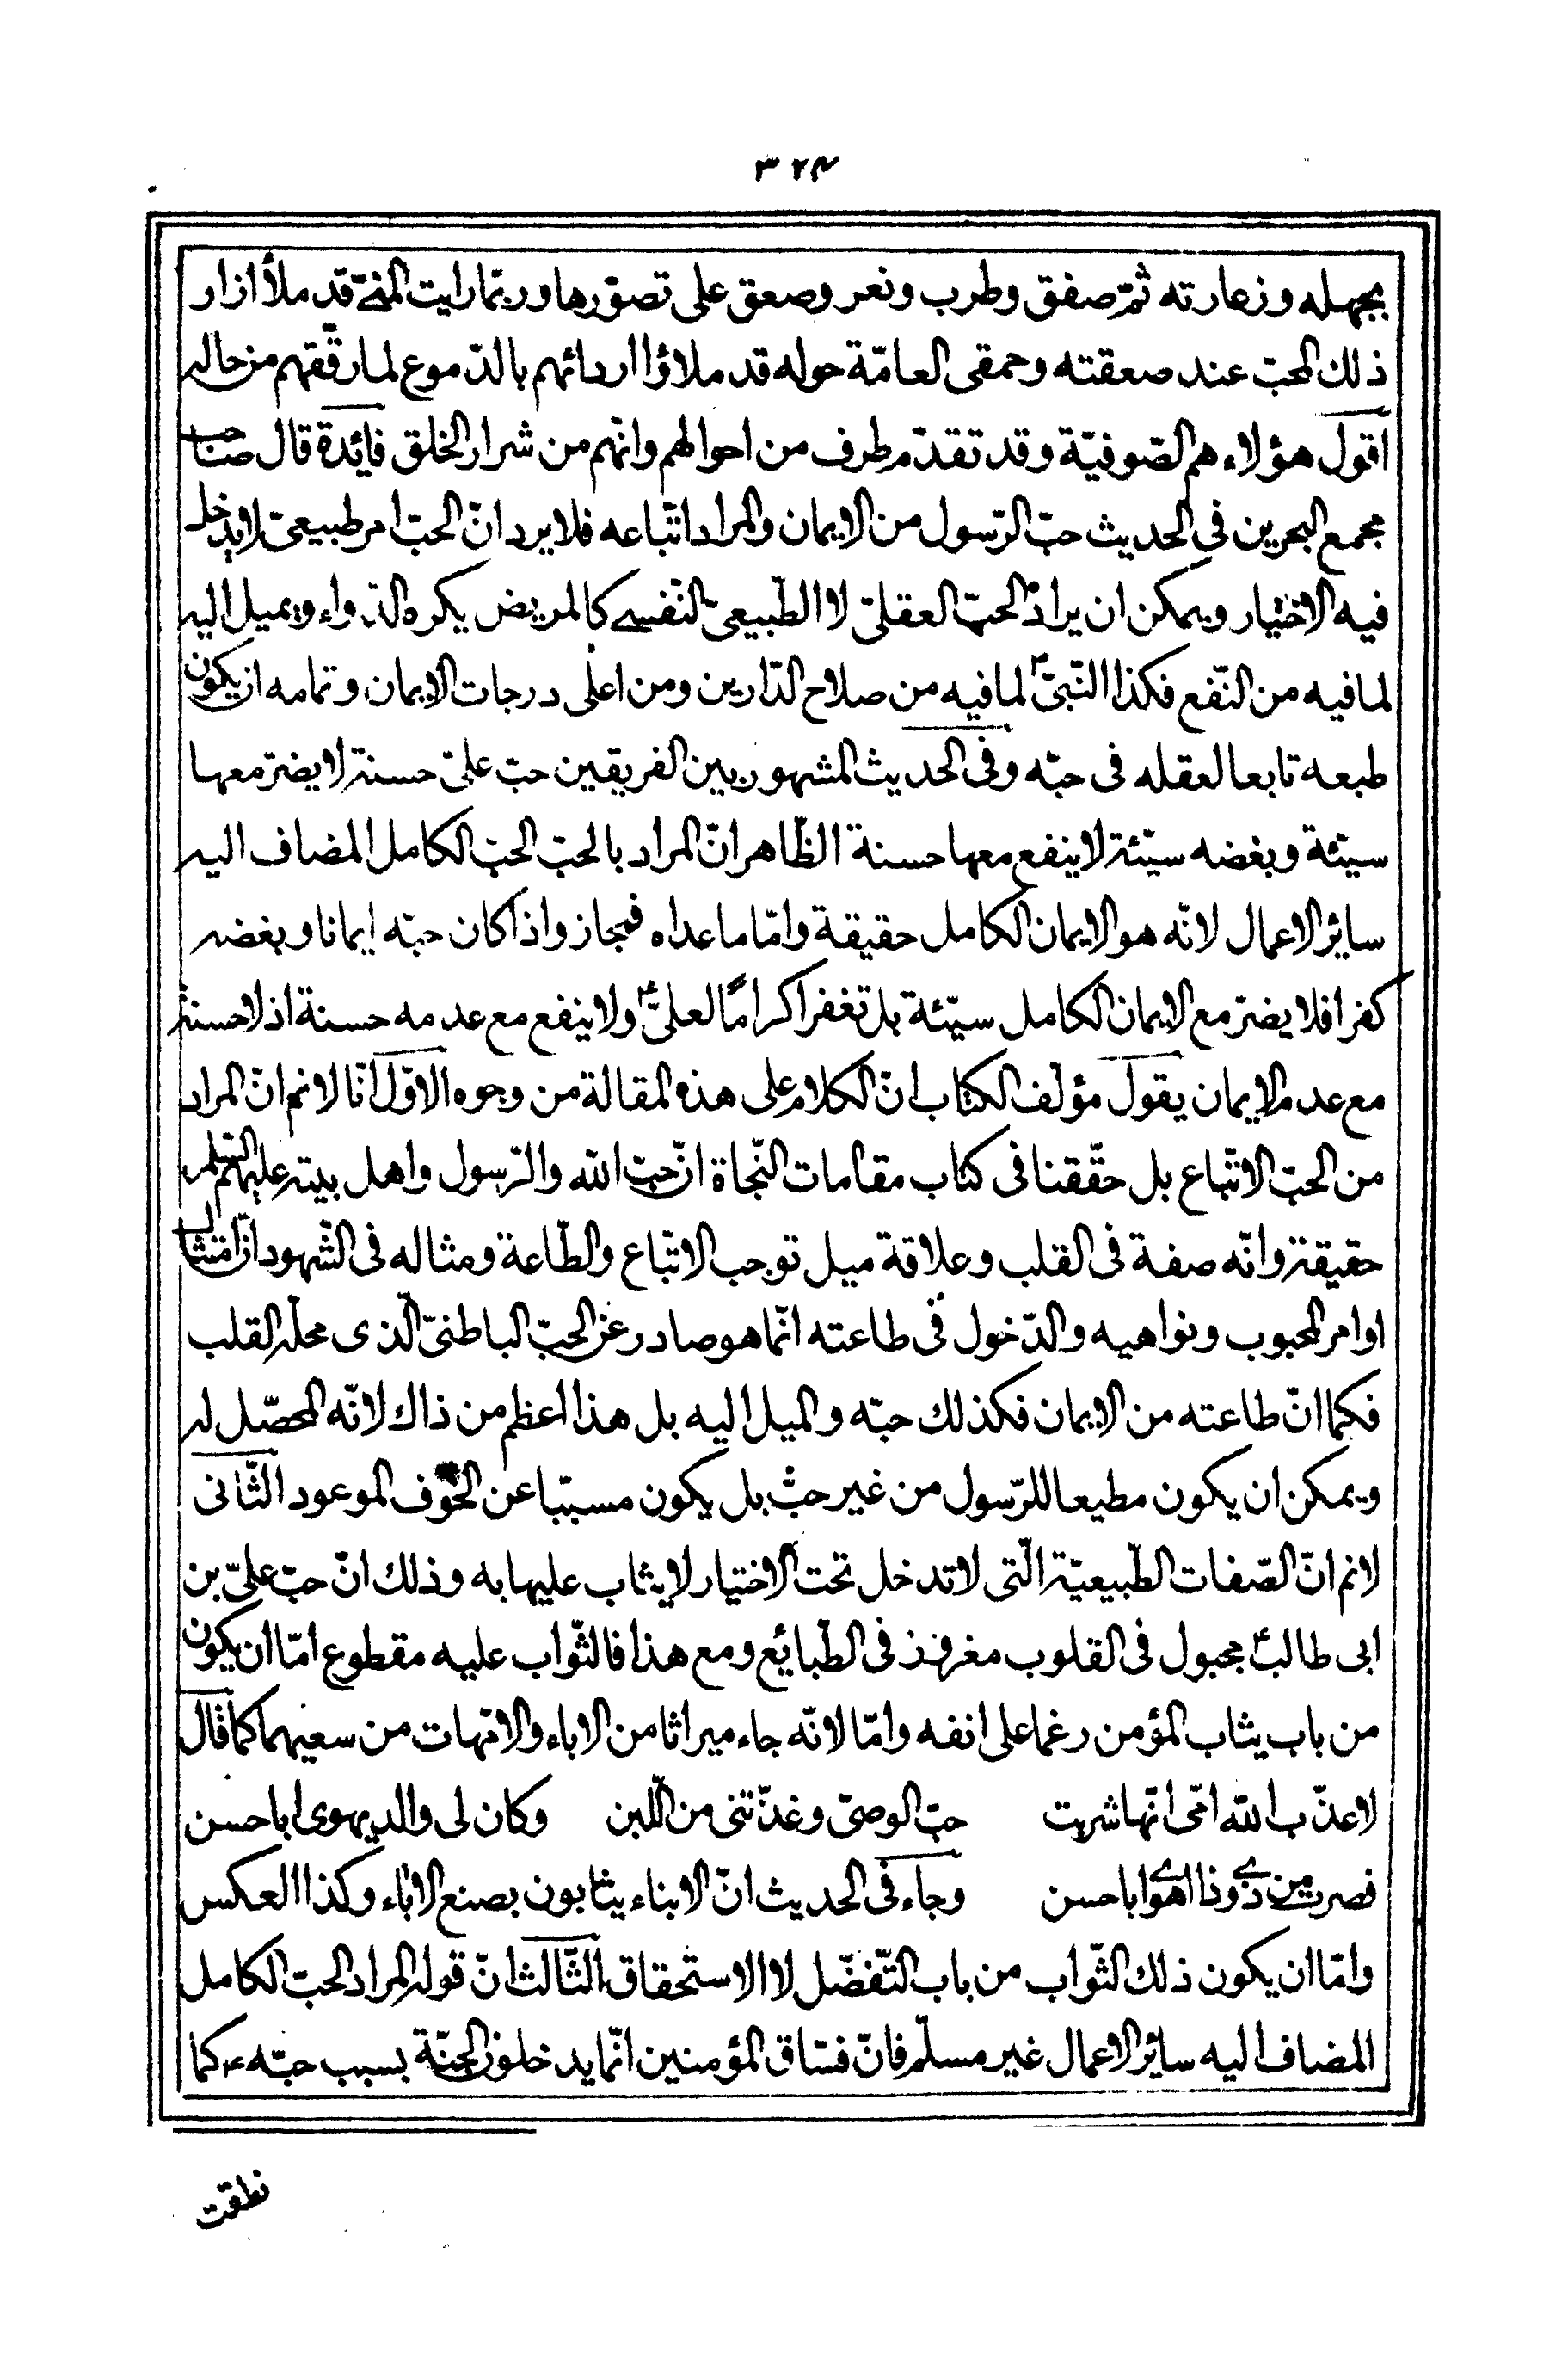 ٣٢٤
بجهله وزعارته ثمّ صفق وطرب ونعر وصعق على تصوّرها وربّما رايت المنىّ قد ملأ ازار
ذلك المحبّ عند صعقته وحمقى العامّة حوله قد ملاؤا اردائهم بالدّموع لما رقّقهم من حاله
اقول هؤلاء هم الصّوفيّة وقد تقدّم طرف من احوالهم وانّهم من شرار الخلق فائدة قال صاحب
مجمع البحرين فى الحديث حبّ الرّسول من الايمان والمراد اتّباعه فلا يرد انّ الحبّ امر طبيعىّ لا يدخل
فيه الاختيار ويمكن ان يراد الحبّ العقلىّ لا الطّبيعىّ النّفسى كالمريض يكره الدّواء ويميل اليه
لما فيه من النّفع فكذا النّبىّ ص لما فيه من صلاح الدّارين ومن اعلى درجات الايمان وتمامه ان يكون
طبعه تابعا لعقله فى حبّه وفى الحديث المشهور بين الفريقين حبّ علىّ حسنة لا يضرّ معها
سيّئة وبغضه سيّئة لا ينفع معها حسنة الظّاهر انّ المراد بالحبّ الحبّ الكامل المضاف اليه
سائر الاعمال لانّه هو الايمان الكامل حقيقة وامّا ما عداه فمجاز واذا كان حبّه ايمانا وبغضه
كفرا فلا يضرّ مع الايمان الكامل سيّئة بل تغفر اكرامًا لعلىّ ع ولا ينفع مع عدمه حسنة اذ لا حسنة
مع عدم الايمان يقول مؤلّف الكتاب انّ الكلام على هذه المقالة من وجوه الاوّل انّا لا نم انّ المراد
من الحبّ الاتّباع بل حقّقنا فى كتاب مقامات النّجاة انّ حبّ الله والرّسول واهل بيته عليهم السّلم
حقيقة وانّه صفة فى القلب وعلاقة ميل توجب الاتّباع والطّاعة ومثاله فى الشّهود انّ امتثال
اوامر المحبوب ونواهيه والدّخول فى طاعته انّما هو صادر عن الحبّ الباطنىّ الّذى محلّه القلب
فكما انّ طاعته من الايمان فكذلك حبّه والميل اليه بل هذا اعظم من ذاك لانّه المحصّل له
ويمكن ان يكون مطيعا للرّسول من غير حبّ بل يكون مسبّبا عن الخوف الموعود الثّانى
لا نم انّ الصّفات الطّبيعيّة الّتى لا تدخل تحت الاختيار لا يثاب عليها به وذلك انّ حبّ علىّ بن
ابى طالب ع مجبول فى القلوب مغروز فى الطّبائع ومع هذا فالثّواب عليه مقطوع امّا ان يكون
من باب يثاب المؤمن رغما على انفه وامّا لانّه جاء ميراثا من الاباء والامّهات من سعيهما كما قال
لا عذّب الله امّى انّها شربت حبّ الوصىّ وغذّتنى من اللّبن وكان لى والد يهوى ابا حسن
فصرت من ذى وذا اهوى ابا حسن وجاء فى الحديث انّ الابناء يثابون بصنع الاباء وكذا العكس
وامّا ان يكون ذلك الثّواب من باب التّفضّل لا الاستحقاق الثّالث انّ قوله المراد الحبّ الكامل
المضاف اليه سائر الاعمال غير مسلّم فانّ فسّاق المؤمنين انّما يدخلون الجنّة بسبب حبّه ع كما
نطقت